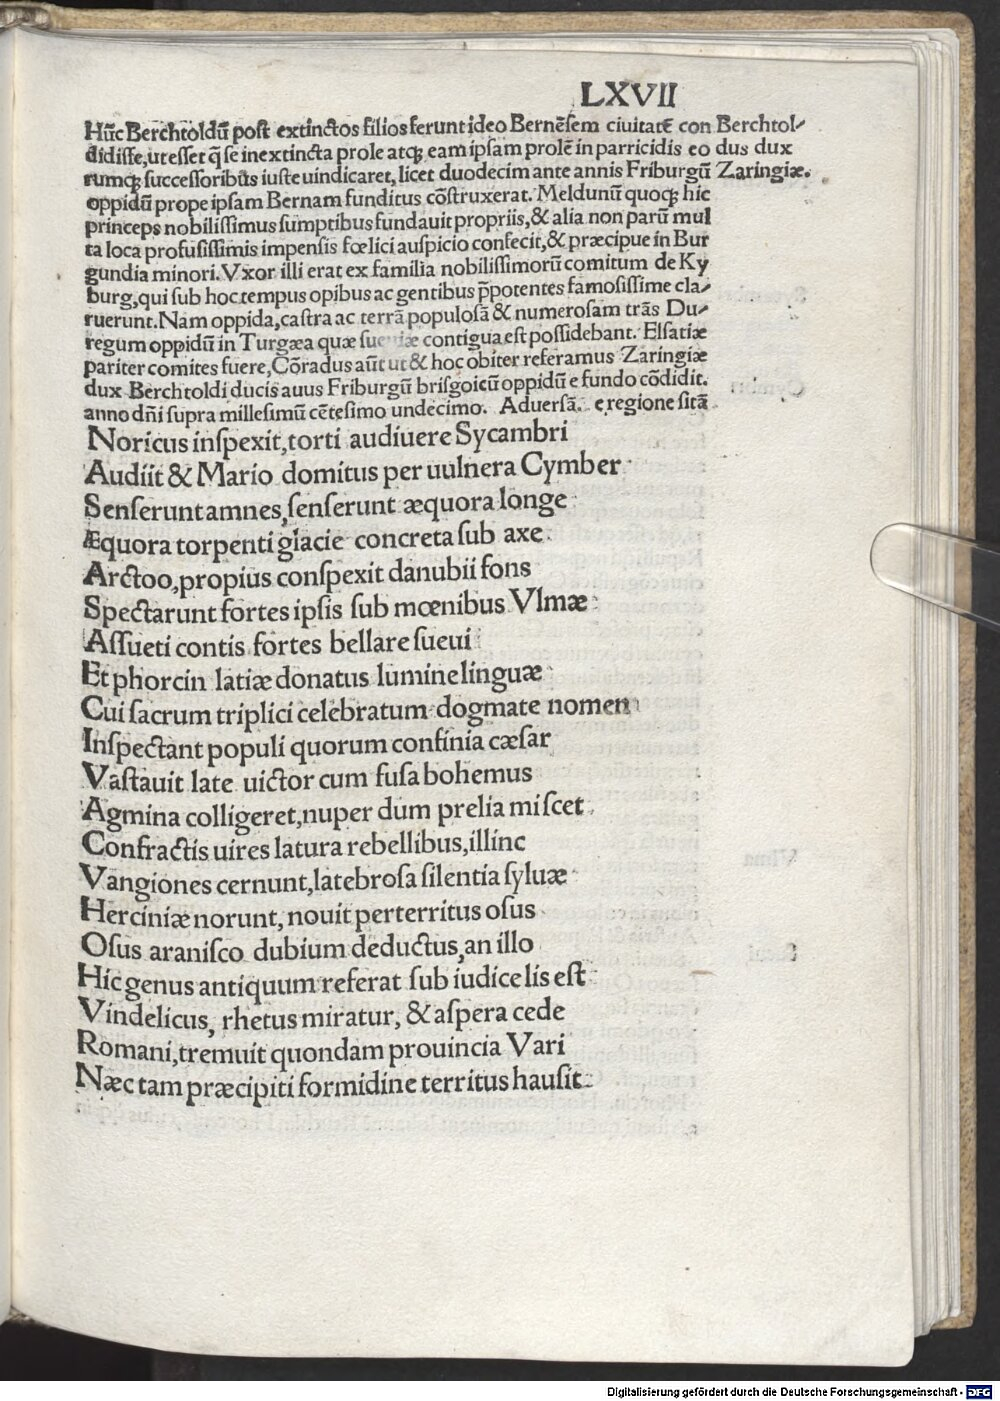 LXVII
Hūc Berchtoldū post extinctos filios ferunt ideo Bernēsem ciuitatē con Berchtol-
didisse, ut esset q̄ se inextincta prole atq; eam ipsam prolē in parricidis eo dus dux
rumq; successoribus iuste uindicaret, licet duodecim ante annis Friburgū Zaringiæ.
oppidū prope ipsam Bernam funditus cōstruxerat. Meldunū quoq; hic
princeps nobilissimus sumptibus fundauit propriis, & alia non parū mul
ta loca profusissimis impensis fœlici auspicio confecit, & præcipue in Bur
gundia minori. Vxor illi erat ex familia nobilissimorū comitum de Ky
burg, qui sub hoc tempus opibus ac gentibus p̄potentes famosissime cla-
ruerunt. Nam oppida, castra ac terrā populosā & numerosam trās Du-
regum oppidū in Turgæa quæ sueuiæ contigua est possidebant. Elsatiæ
pariter comites fuere, Cōradus aūt ut & hoc obiter referamus Zaringiæ
dux Berchtoldi ducis auus Friburgū brisgoicū oppidū e fundo cōdidit.
anno dñi supra millesimū cētesimo undecimo. Aduersā. e regione sitā
Noricus inspexit, torti audiuere Sycambri
Audiit & Mario domitus per uulnera Cymber
Senserunt amnes, senserunt æquora longe
Æquora torpenti glacie concreta sub axe
Arctoo, propius conspexit danubii fons
Spectarunt fortes ipsis sub mœnibus Vlmæ
Assueti contis fortes bellare sueui
Et phorcin latiæ donatus lumine linguæ
Cui sacrum triplici celebratum dogmate nomen
Inspectant populi quorum confinia cæsar
Vastauit late uictor cum fusa bohemus
Agmina colligeret, nuper dum prelia miscet
Confractis uires latura rebellibus, illinc
Vangiones cernunt, latebrosa silentia syluæ
Herciniæ norunt, nouit perterritus osus
Osus aranisco dubium deductus, an illo
Hic genus antiquum referat sub iudice lis est
Vindelicus, rhetus miratur, & aspera cede
Romani, tremuit quondam prouincia Vari
Næc tam præcipiti formidine territus hausit
Digitalisierung gefördert durch die Deutsche Forschungsgemeinschaft - DFG